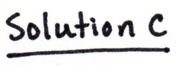 Solution C